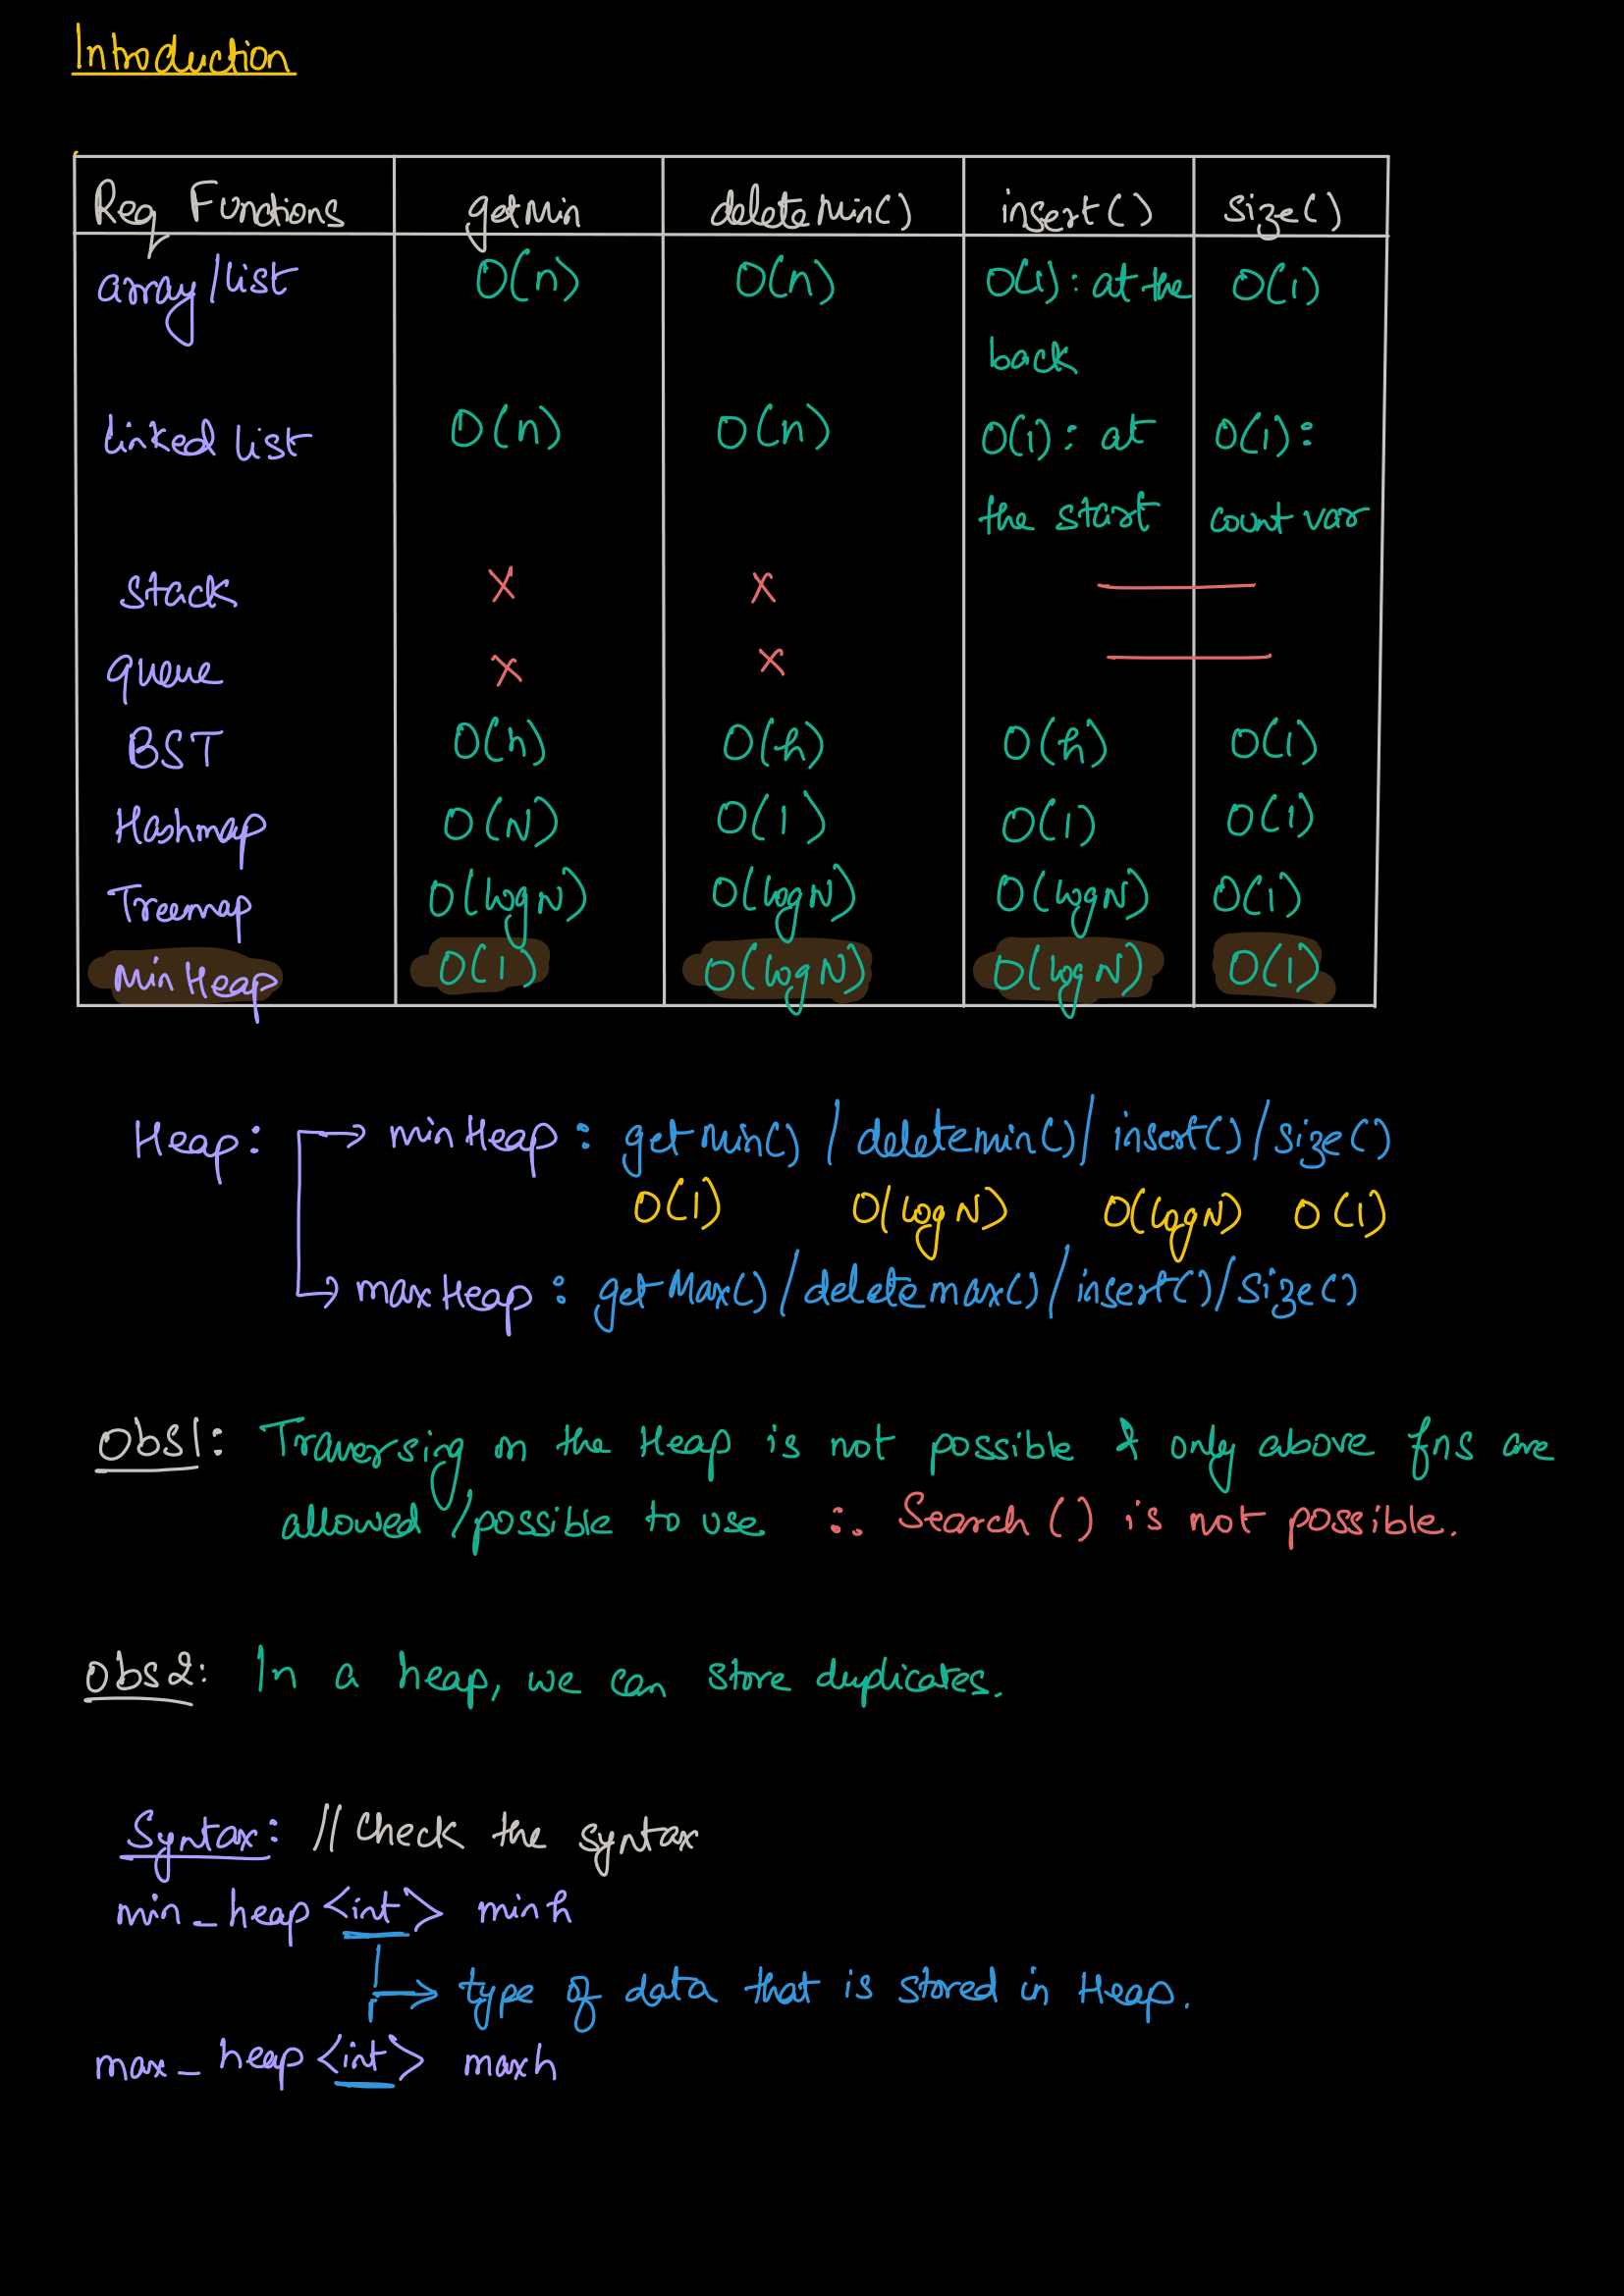 Introduction
Req Functions getMin deleteMin() insert() size()
array/list O(n) O(n) O(1): at the O(1)
back
linked list O(n) O(n) O(1): at O(1):
the start count var
stack x x
queue x x
BST O(h) O(h) O(h) O(1)
Hashmap O(N) O(1) O(1) O(1)
Treemap O(logN) O(logN) O(logN) O(1)
Min Heap O(1) O(logN) O(logN) O(1)
Heap: → minHeap: getMin() / deletemin() / insert() / size()
O(1) O(logN) O(logN) O(1)
→ maxHeap: getMax() / deletemax() / insert() / size()
Obs1: Traversing on the Heap is not possible & only above fns are
allowed/possible to use ∴ Search() is not possible.
Obs2: In a heap, we can store duplicates.
Syntax: // Check the syntax
min_heap <int> minh
→ type of data that is stored in Heap.
max_heap <int> maxh